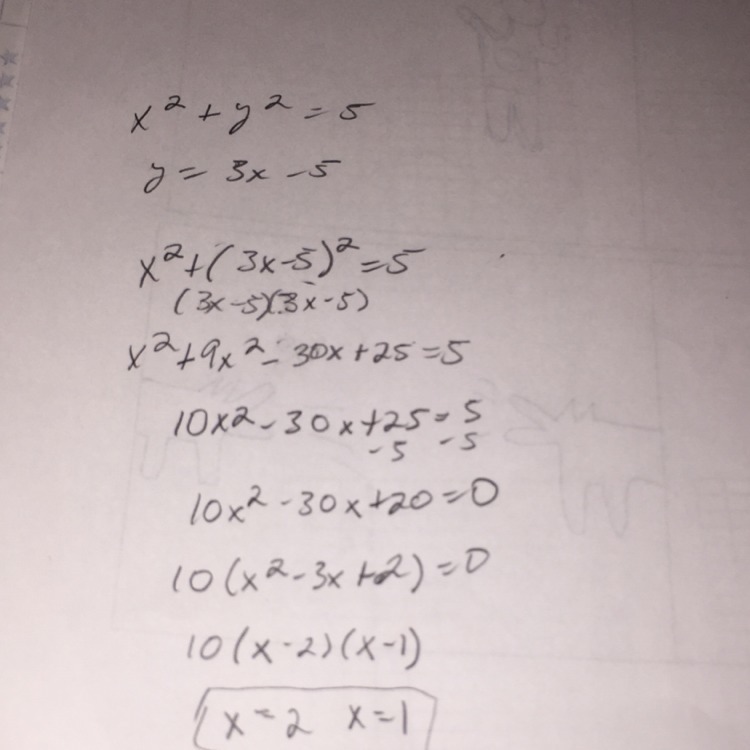 x² + y² = 5
y = 3x - 5
x² + (3x-5)² = 5
(3x-5)(3x-5)
x² + 9x² - 30x + 25 = 5
10x² - 30x + 25 = 5
-5 -5
10x² - 30x + 20 = 0
10(x² - 3x + 2) = 0
10(x-2)(x-1)
x = 2 x = 1